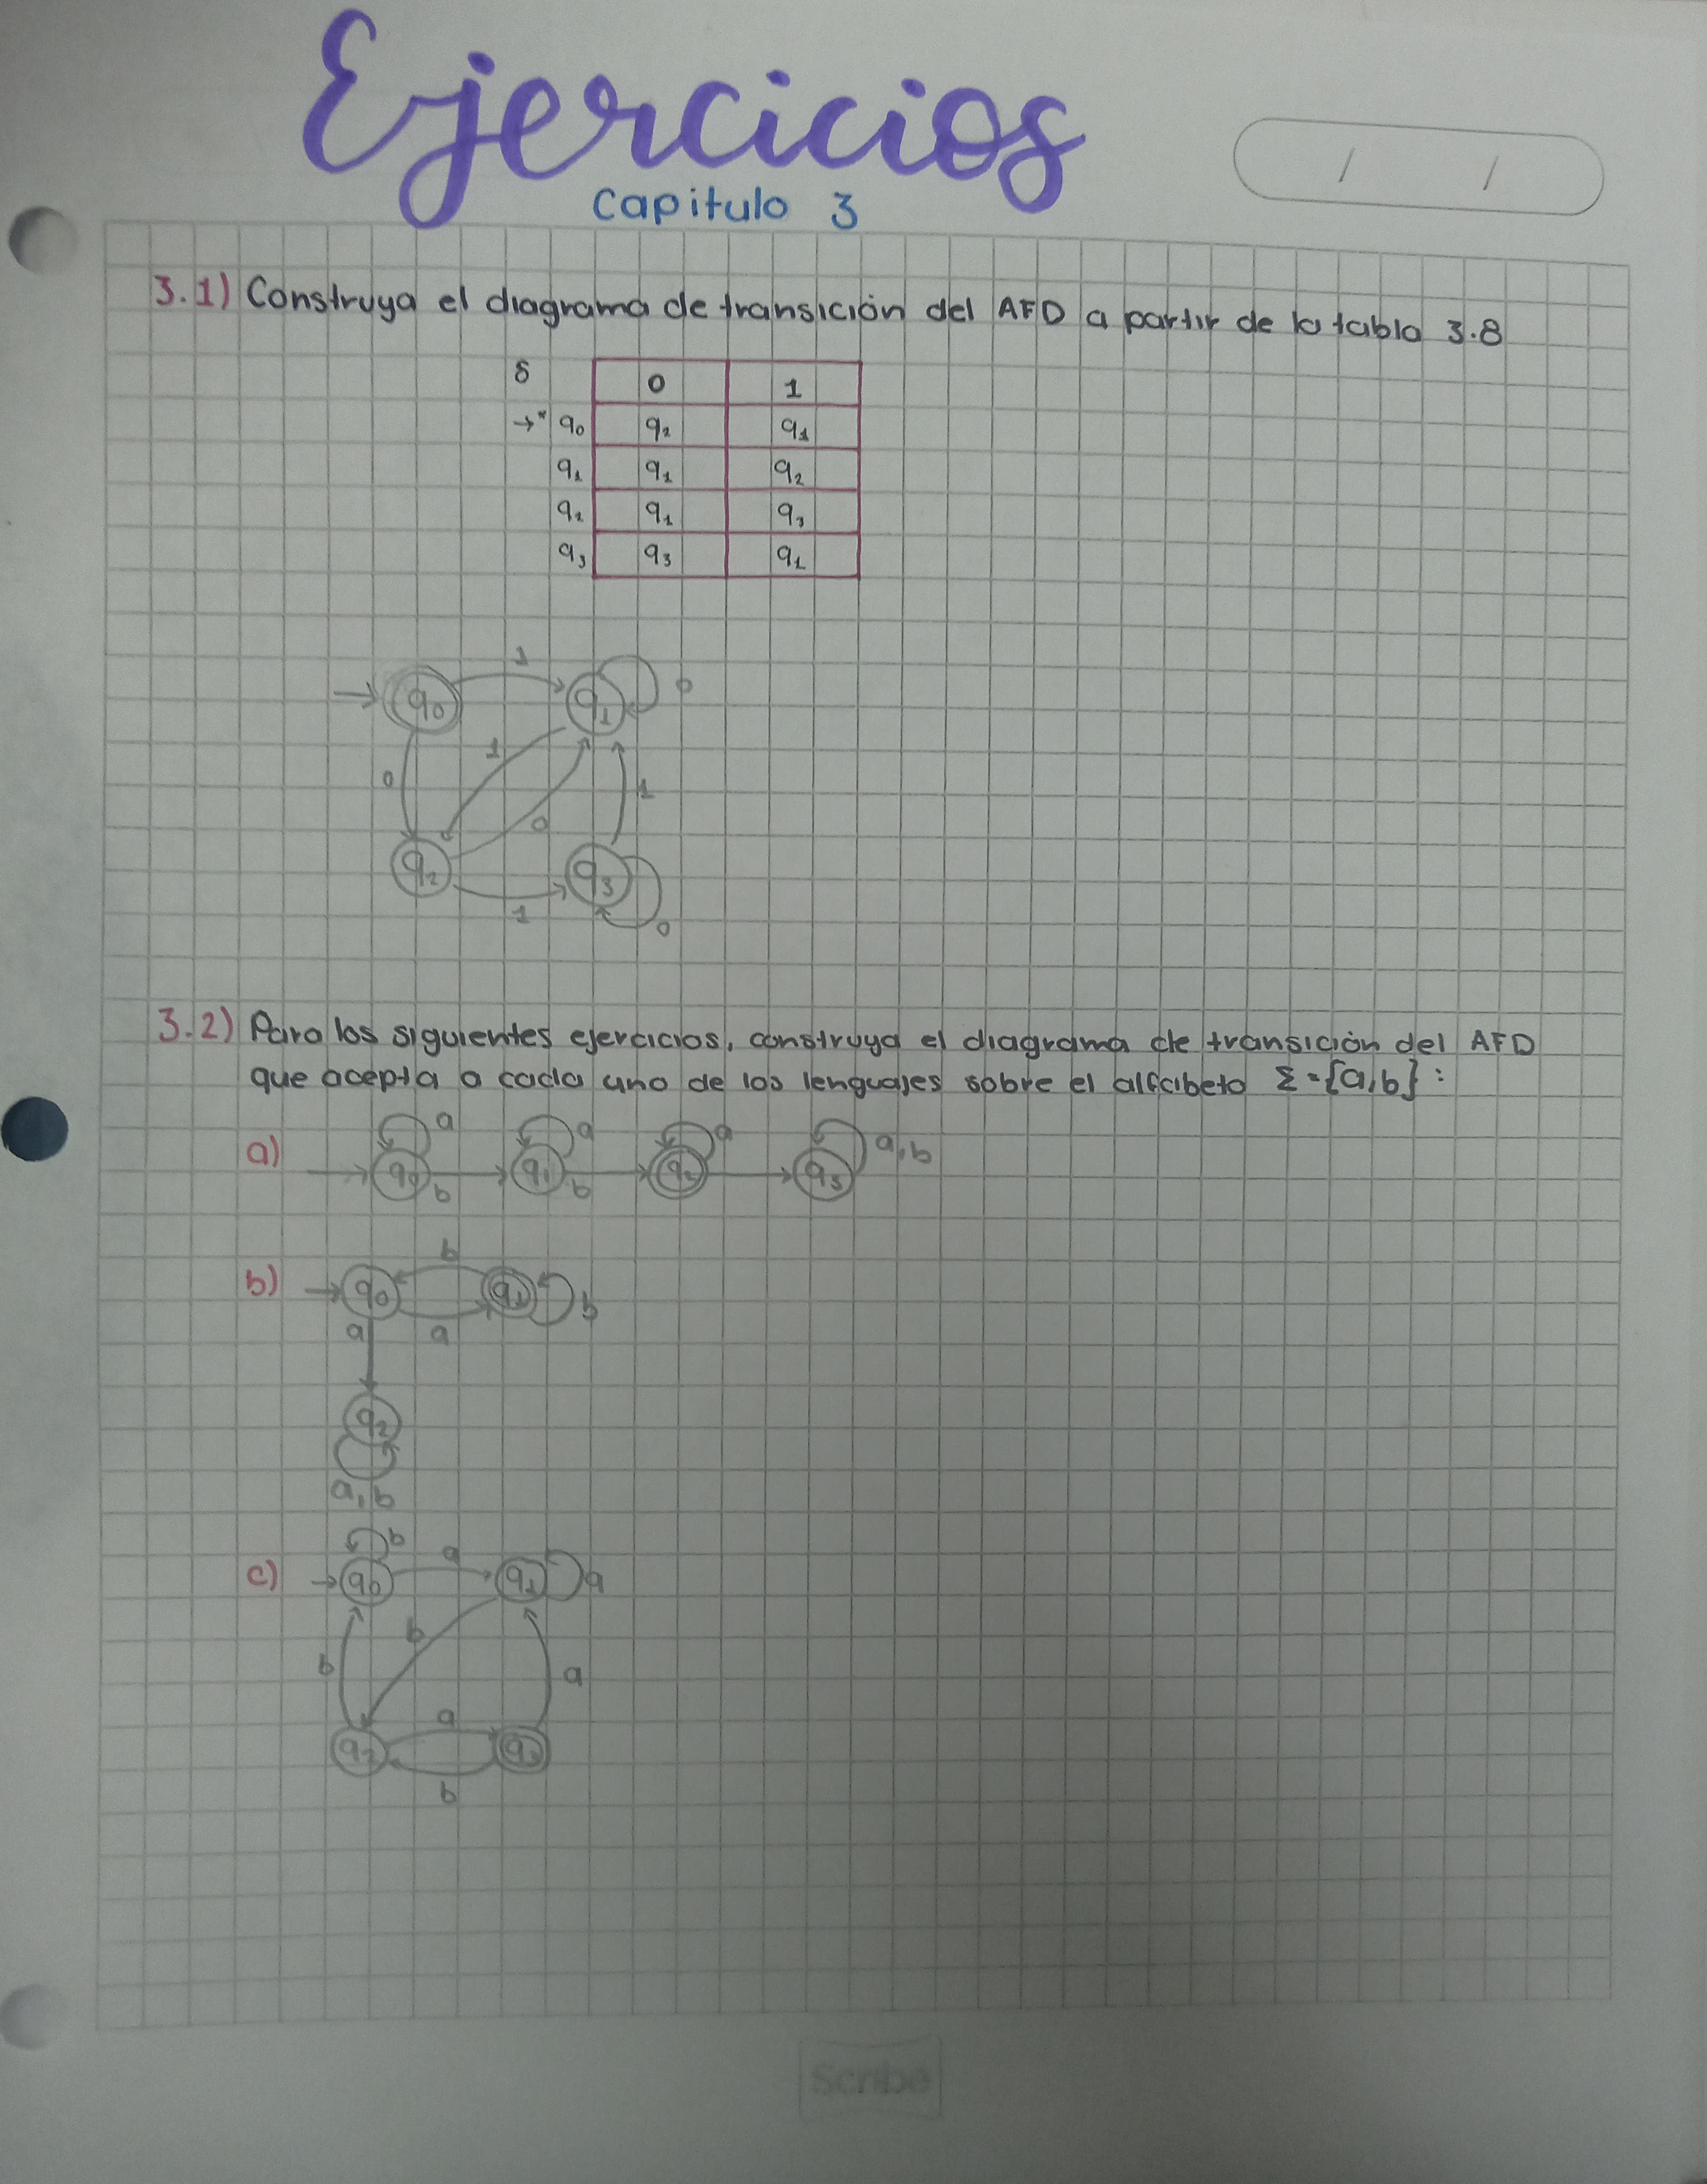 Ejercicios
Capitulo 3
/ /
3.1) Construya el diagrama de transición del AFD a partir de la tabla 3.8
δ 0 1
→* q0 q2 q1
q1 q1 q2
q2 q1 q3
q3 q3 q1
1
q0 q1 0
0 1 1
0
q2 q3
1 0
3.2) Para los siguientes ejercicios, construya el diagrama de transición del AFD
que acepta a cada uno de los lenguajes sobre el alfabeto Σ={a,b}:
a a a a,b
a) q0 q1 q2 q3
b b
b
b) q0 q1 b
a a
q2
a,b
b a
c) q0 q1 a
b
b a
a
q2 q3
b
Scribe